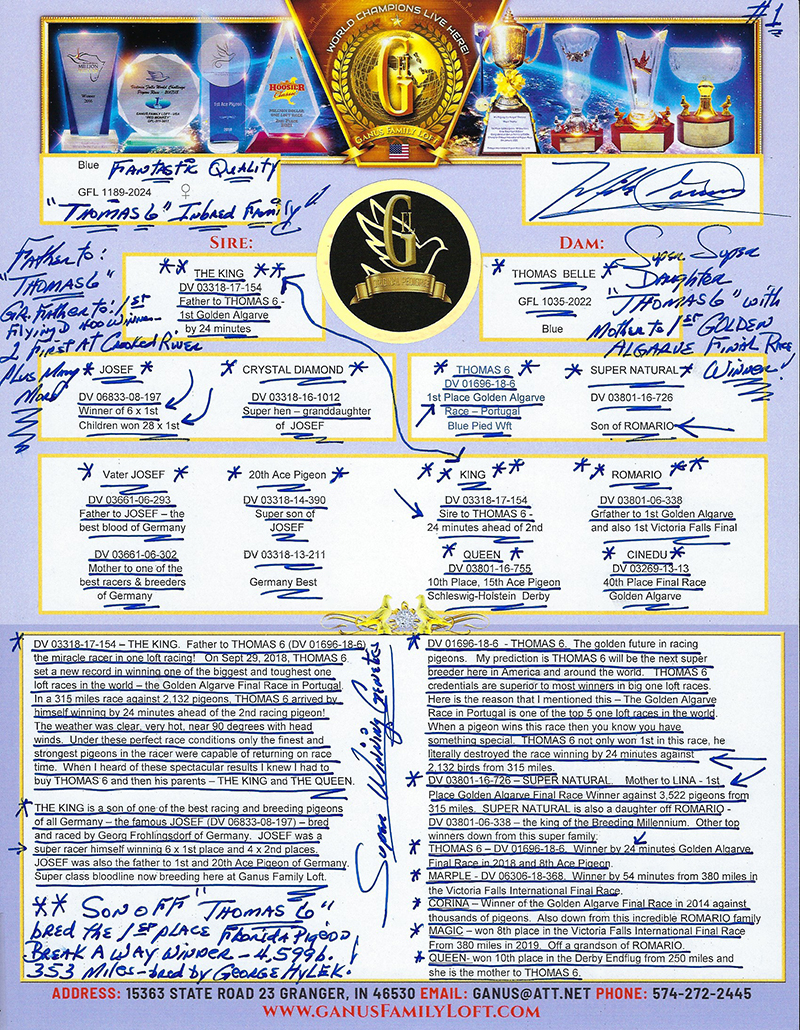 #1
WORLD CHAMPIONS LIVE HERE!
GFL
GANUS FAMILY LOFT
HOOSIER
Classic
1st Ace Pigeon
Blue Fantastic Quality
GFL 1189-2024 ♀
"Thomas 6" Inbred Family"
SIRE:
Father to:
"Thomas 6"
Gr. Father to: 1st
Flying D 400 Winner-
2 First at Crooked River
Plus Many
More
** THE KING **
DV 03318-17-154
Father to THOMAS 6 -
1st Golden Algarve
by 24 minutes
GFL
ORIGINAL PEDIGREE
DAM:
* THOMAS BELLE *
GFL 1035-2022
Blue
Super Super
Daughter
"THOMAS 6" with
Mother to 1st Golden
Algarve Final Race
Winner!
* JOSEF *
DV 06833-08-197
Winner of 6 x 1st
Children won 28 x 1st
* CRYSTAL DIAMOND *
DV 03318-16-1012
Super hen – granddaughter
of JOSEF
* THOMAS 6 *
DV 01696-18-6
1st Place Golden Algarve
Race – Portugal
Blue Pied Wft
* SUPER NATURAL *
DV 03801-16-726
Son of ROMARIO
* Vater JOSEF *
DV 03661-06-293
Father to JOSEF – the
best blood of Germany
DV 03661-06-302
Mother to one of the
best racers & breeders
of Germany
* 20th Ace Pigeon *
DV 03318-14-390
Super son of
JOSEF
DV 03318-13-211
Germany Best
** KING **
DV 03318-17-154
Sire to THOMAS 6 -
24 minutes ahead of 2nd
* QUEEN *
DV 03801-16-755
10th Place, 15th Ace Pigeon
Schleswig-Holstein Derby
* ROMARIO **
DV 03801-06-338
Grfather to 1st Golden Algarve
and also 1st Victoria Falls Final
* CINEDU *
DV 03269-13-13
40th Place Final Race
Golden Algarve
* DV 03318-17-154 – THE KING. Father to THOMAS 6 (DV 01696-18-6)
the miracle racer in one loft racing! On Sept 29, 2018, THOMAS 6
set a new record in winning one of the biggest and toughest one
loft races in the world – the Golden Algarve Final Race in Portugal.
In a 315 miles race against 2,132 pigeons, THOMAS 6 arrived by
himself winning by 24 minutes ahead of the 2nd racing pigeon!
The weather was clear, very hot, near 90 degrees with head
winds. Under these perfect race conditions only the finest and
strongest pigeons in the racer were capable of returning on race
time. When I heard of these spectacular results I knew I had to
buy THOMAS 6 and then his parents – THE KING and THE QUEEN.
* THE KING is a son of one of the best racing and breeding pigeons
of all Germany – the famous JOSEF (DV 06833-08-197) – bred
and raced by Georg Frohlingsdorf of Germany. JOSEF was a
super racer himself winning 6 x 1st place and 4 x 2nd places.
JOSEF was also the father to 1st and 20th Ace Pigeon of Germany.
Super class bloodline now breeding here at Ganus Family Loft.
** Son off "Thomas 6"
bred the 1st Place Florida Pigeon
Break A Way Winner - 4,599 b.
353 Miles - bred by George Hylek.
Super Winning Genetics
* DV 01696-18-6 - THOMAS 6. The golden future in racing
pigeons. My prediction is THOMAS 6 will be the next super
breeder here in America and around the world. THOMAS 6
credentials are superior to most winners in big one loft races.
Here is the reason that I mentioned this – The Golden Algarve
Race in Portugal is one of the top 5 one loft races in the world.
When a pigeon wins this race then you know you have
something special. THOMAS 6 not only won 1st in this race, he
literally destroyed the race winning by 24 minutes against
2,132 birds from 315 miles.
* DV 03801-16-726 – SUPER NATURAL. Mother to LINA - 1st
Place Golden Algarve Final Race Winner against 3,522 pigeons from
315 miles. SUPER NATURAL is also a daughter off ROMARIO -
DV 03801-06-338 – the king of the Breeding Millennium. Other top
winners down from this super family:
* THOMAS 6 – DV 01696-18-6. Winner by 24 minutes Golden Algarve
Final Race in 2018 and 8th Ace Pigeon.
* MARPLE - DV 06306-18-368. Winner by 54 minutes from 380 miles in
the Victoria Falls International Final Race.
* CORINA – Winner of the Golden Algarve Final Race in 2014 against
thousands of pigeons. Also down from this incredible ROMARIO family
* MAGIC – won 8th place in the Victoria Falls International Final Race
From 380 miles in 2019. Off a grandson of ROMARIO.
* QUEEN- won 10th place in the Derby Endflug from 250 miles and
she is the mother to THOMAS 6.
ADDRESS: 15363 STATE ROAD 23 GRANGER, IN 46530 EMAIL: GANUS@ATT.NET PHONE: 574-272-2445
WWW.GANUSFAMILYLOFT.COM